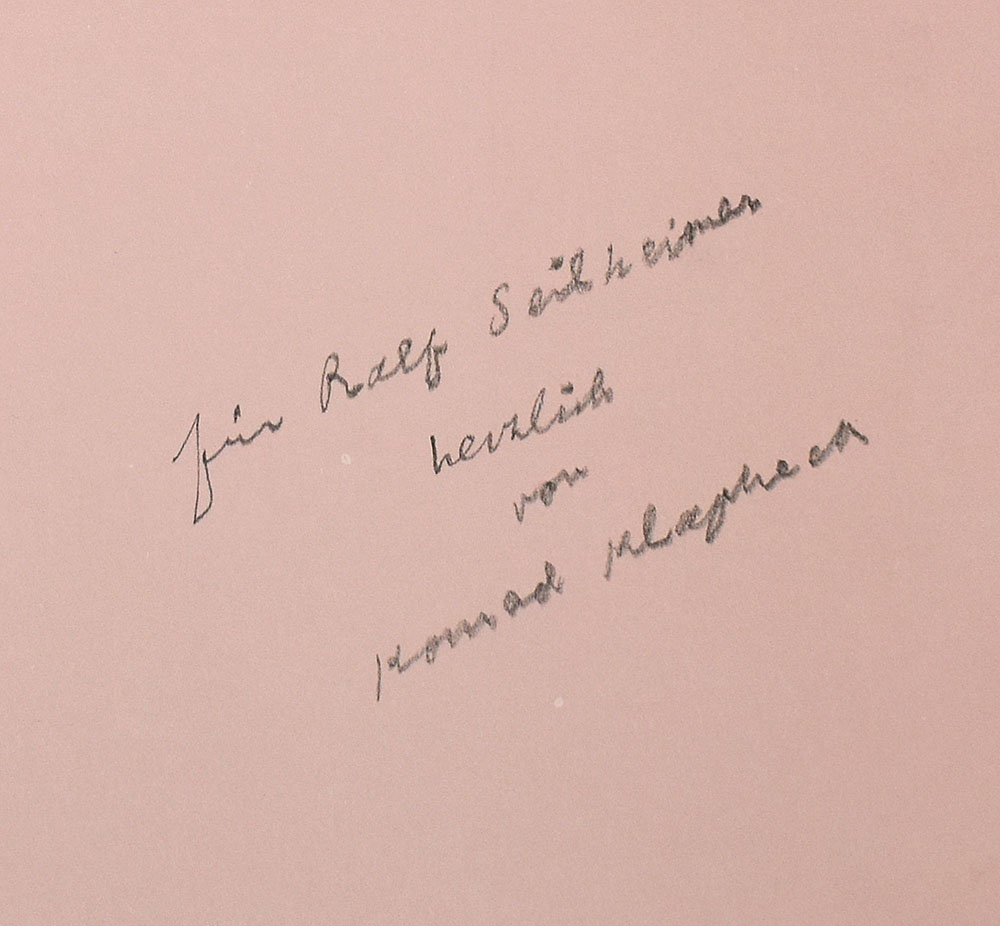 für Ralf Seilheimer
herzlich
von
Konrad Klapheck